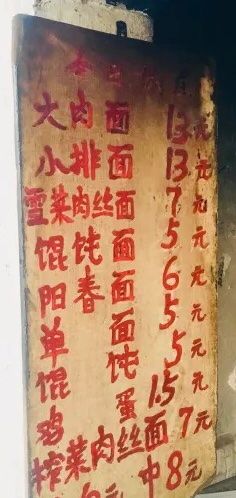 今日供应
大肉面 13元
小排面 13元
雪菜肉丝面 7元
馄饨面 5元
阳春面 6元
单面 5元
馄饨 5元
鸡蛋 1.5元
榨菜肉丝面 7元
元 中8元